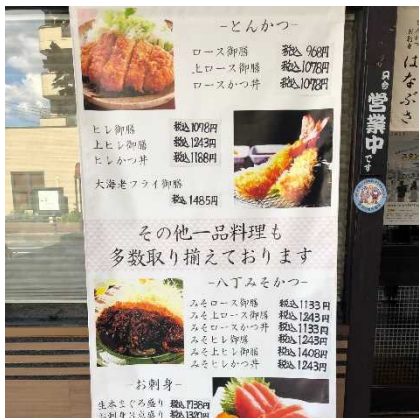 -とんかつ-
ロース御膳 税込 968円
上ロース御膳 税込1078円
ロースかつ丼 税込1078円
ヒレ御膳 税込1078円
上ヒレ御膳 税込1243円
ヒレかつ丼 税込1188円
大海老フライ御膳
税込1485円
その他一品料理も
多数取り揃えております
-八丁みそかつ-
みそロース御膳 税込1133円
みそ上ロース御膳 税込1243円
みそロースかつ丼 税込1133円
みそヒレ御膳 税込1243円
みそ上ヒレ御膳 税込1408円
みそヒレかつ丼 税込1243円
-お刺身-
生本まぐろ盛り 税込1738円
お刺身3点盛り 税込1320円
はなぶさ
只今
営業中
です